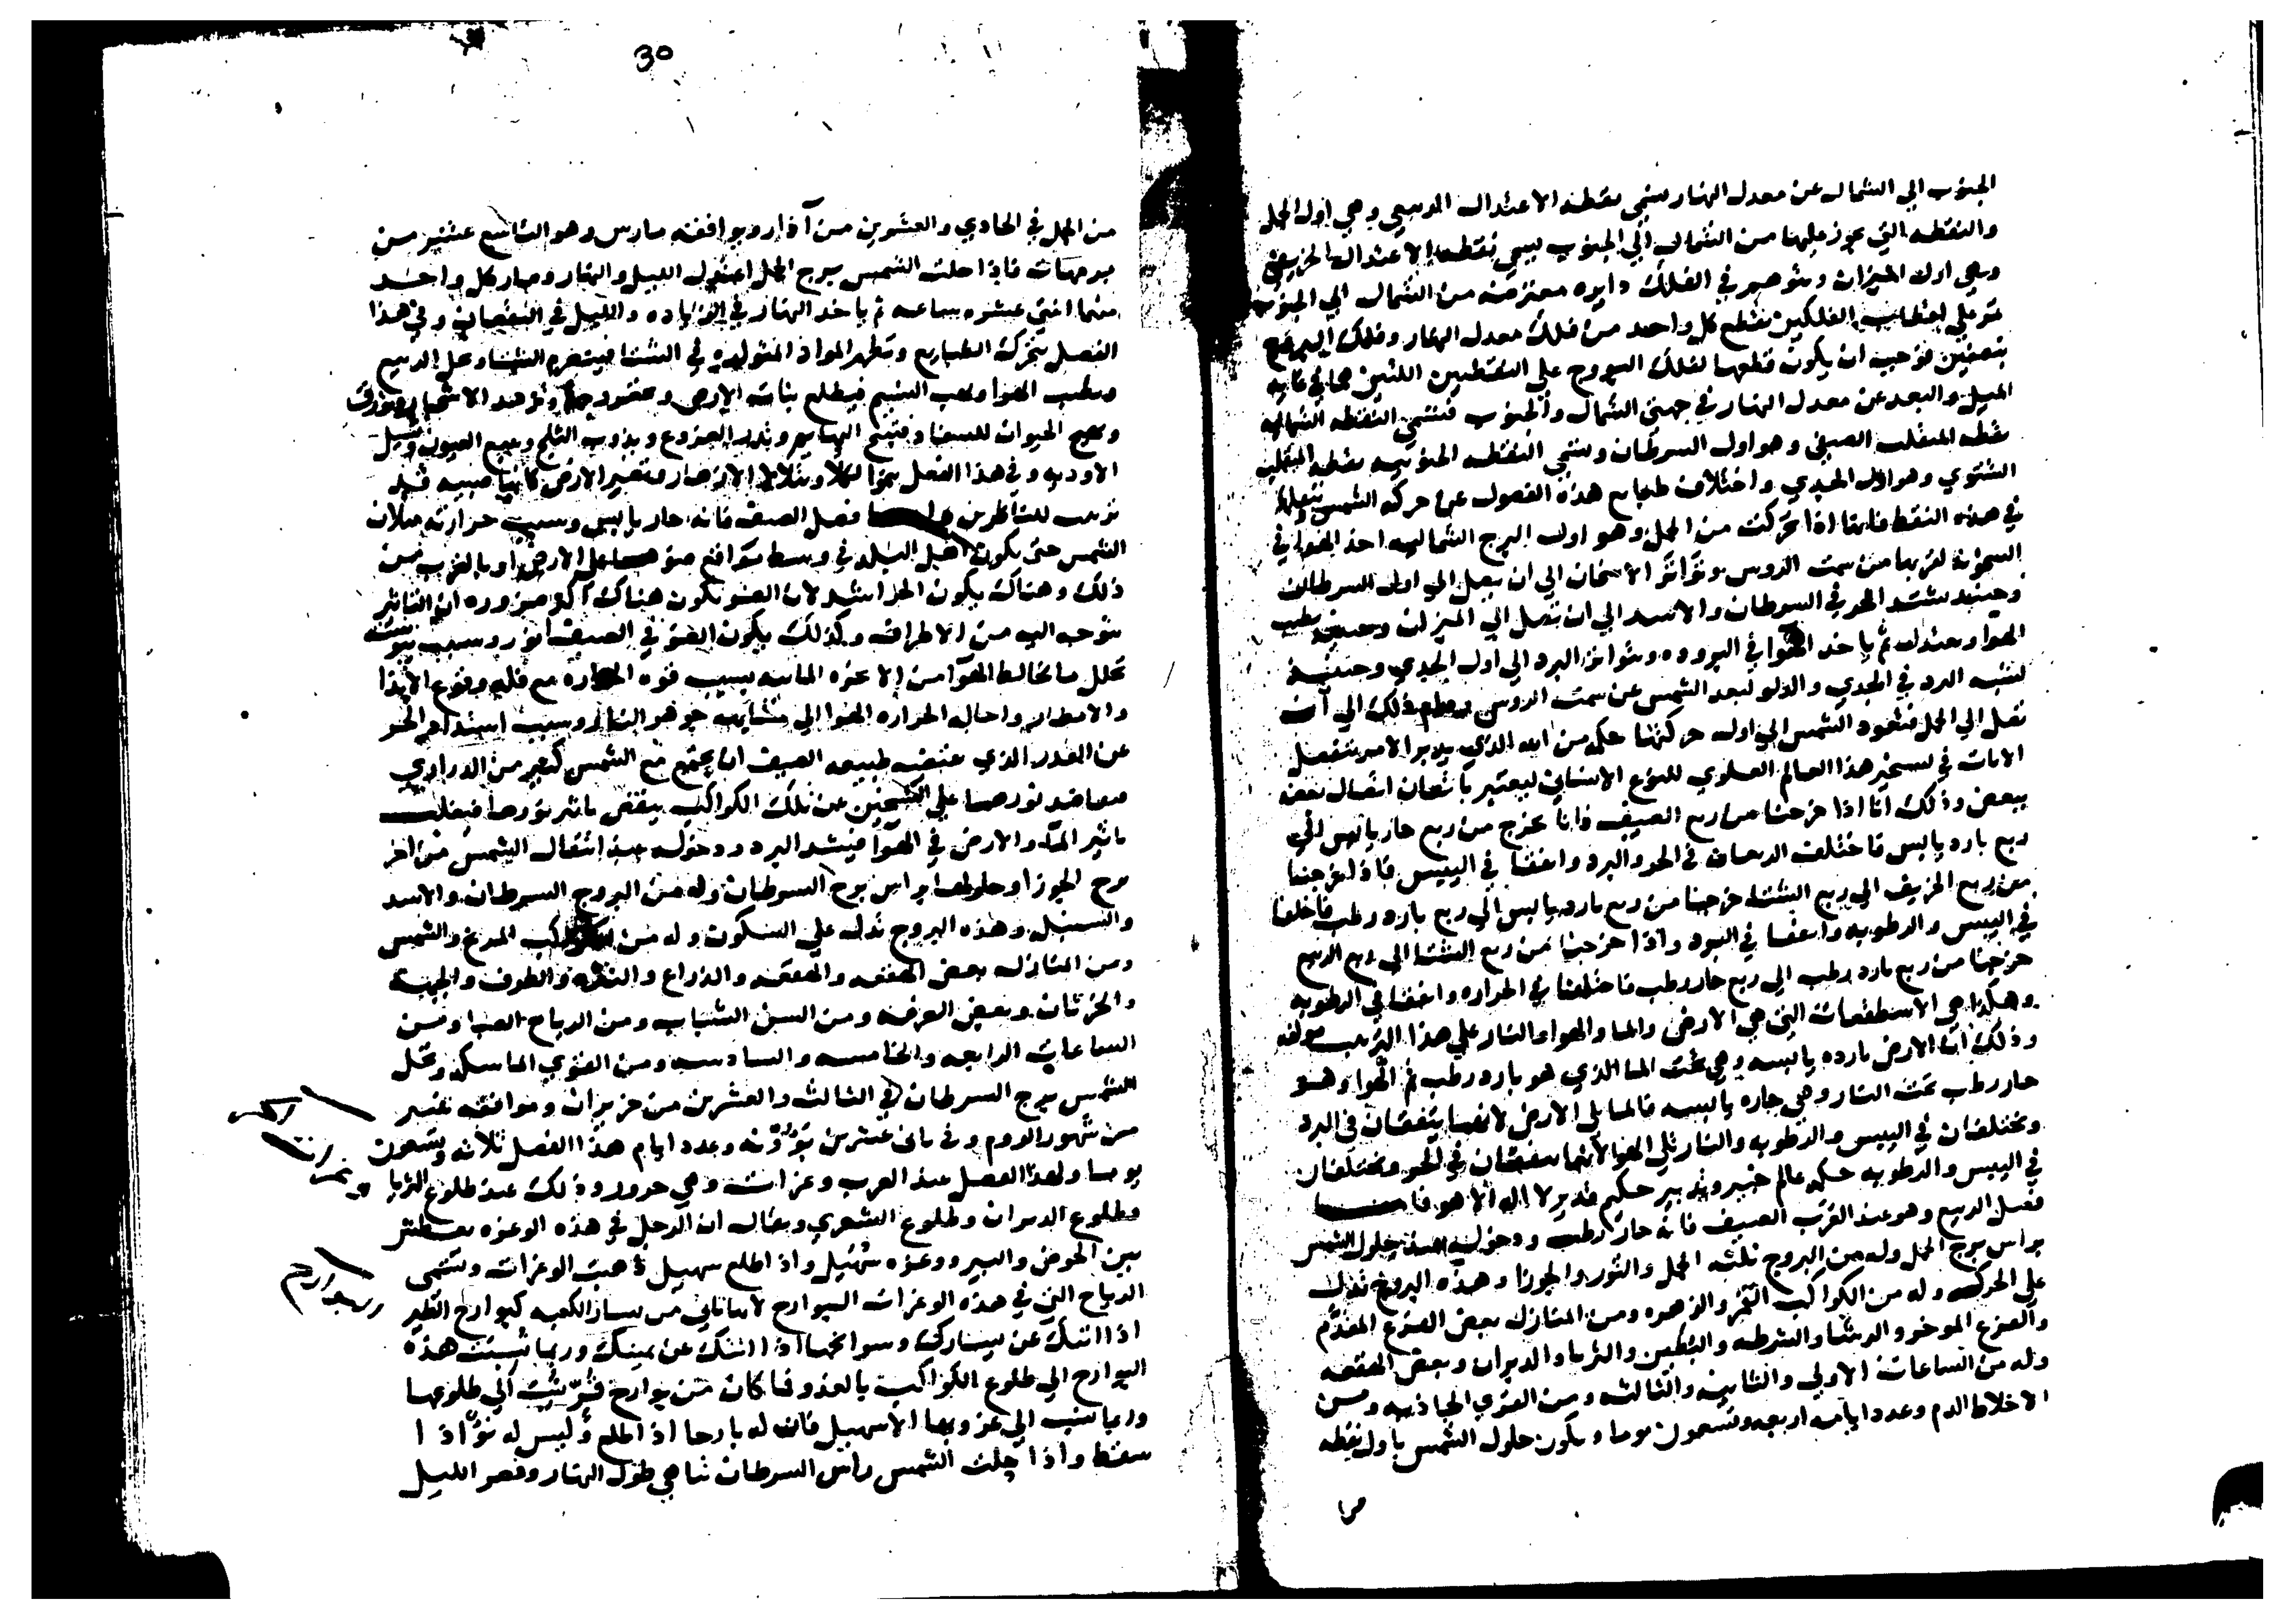 الجنوب الي الشمال عن معدل النهار سمي نقطه الاعتدال الربيعي وهي اول الحمل
والنقطه التي يجوز عليها من الشمال الي الجنوب يسمي نقطه الاعتدال الخريفي
وهي اول الميزان ويتوهم في الفلك دايره معترضه من الشمال الي الجنوب
تمر علي اقطاب الفلكين تقطع كل واحد من فلك معدل النهار وفلك البروج
بنصفين فوجب ان يكون قطعها لفلك البروج علي النقطتين اللتين هما في غايه
الميل والبعد عن معدل النهار في جهتي الشمال والجنوب فتسمي النقطه الشماليه
نقطه المنقلب الصيفي وهو اول السرطان وتسمي النقطه الجنوبيه نقطه المنقلب
الشتوي وهو اول الجدي واختلاف طبايع هذه الفصول عن حركه الشمس وتنقلها
في هذه النقط فانها اذا تحركت من الحمل وهو اول البرج الشماليه اخذ الهوا في
السخونه لقربها من سمت الروس وتواتر الاسخان الي ان يصل الي اول السرطان
وحينيد يشتد الحر في السرطان والاسد الي ان تصل الي الميزان وحينيد يطيب
الهوا ويعتدل ثم ياخذ الهوا في البروده ويتواتر البرد الي اول الجدي وحينيد
يشتد البرد في الجدي والدلو لبعد الشمس عن سمت الروس ذلك الي ان
تصل الي الحمل فتعود الشمس الي اول حركتها حكمه من الله الذي يدبر الامر يفصل
الايات في تسخير هذا العالم العلوي للنوع الانساني ليعتبر باتصال بعضه
ببعض وذلك انا اذا خرجنا من ربع الصيف فانا نخرج من ربع حار يابس الي
ربع بارد يابس فاختلف الربعان في الحر والبرد واتفقا في اليبس فاذا خرجنا
من ربع الخريف الي ربع الشتا خرجنا من ربع بارد يابس الي ربع بارد رطب فاختلفا
في اليبس والرطوبه واتفقا في البرد واذا خرجنا من ربع الشتا الي ربع الربيع
خرجنا من ربع بارد رطب الي ربع حار رطب فاختلفا في الحراره واتفقا في الرطوبه
وهكذا هي الاسطقصات التي هي الارض والما والهوا والنار علي هذا الترتيب مولفه
وذلك ان الارض بارده يابسه وهي تحت الما الذي هو بارد رطب ثم الهوا وهو
حار رطب تحت النار وهي حاره يابسه فالما يلي الارض لانهما يتفقان في البرد
ويختلفان في اليبس والرطوبه والنار تلي الهوا لانهما يتفقان في الحر ويختلفان
في اليبس والرطوبه حكمه عالم خبير وتدبير حكيم قدير لا اله الا هو فاما
فصل الربيع وهو عند العرب الصيف فانه حار رطب ودخوله عند حلول الشمس
براس برج الحمل وله من البروج ثلثه الحمل والثور والجوزا وهذه البروج تدل
علي الحركه وله من الكواكب القمر والزهره ومن المنازل بعض الفرغ المقدم
والفرغ الموخر والرشا والشرطه والبطين والثريا والدبران وبعض الهقعه
وله من الساعات الاولي والثانيه والثالثه ومن القوي الجاذبه ومن
الاخلاط الدم وعدد ايامه اربعه وتسعون يوما ويكون حلول الشمس باول نقطه
30
من الحمل في الحادي والعشرين من آذار ويوافقه مارس وهو التاسع عشر من
برمهات فاذا حلت الشمس برج الحمل اعتدل الليل والنهار وصار كل واحد
منهما اثنتي عشره ساعه ثم ياخذ النهار في الزياده والليل في النقصان وفي هذا
الفصل تتحرك الطبايع وتظهر المواد المتولده في الشتا
ويطيب الهوا ويهب النسيم فيطلع نبات الارض الاشجار وتورق
ويهيج الحيوان للسفاد وتنتج البهايم وتدر الضروع ويذوب الثلج وتنبع العيون وتسيل
الاوديه وفي هذا الفصل ينمو الكلا وتتلالا الازهار وتصير الارض كانها صبيه قد
تزينت للناظرين فصل الصيف فانه حار يابس وسبب حرارته ميلان
الشمس حتي يكون اهل البلد في وسط مواقع ضوها علي الارض او بالقرب من
ذلك وهناك يكون الحر اشد لان الضو يكون هناك اكثر ضروره ان التاثير
يتوجه اليه من الاطراف وكذلك يكون الضو في الصيف انور وسبب يبوسته
تحلل ما يخالط الهوا من الابخره المائيه بسبب قوه الحراره مع قله وقوع الاندا
والامطار واحاله الحراره الهوا الي مشابهه جوهر النار وسبب اشتداد الحر
عن القدر الذي تقتضيه طبيعه الصيف ان يجتمع مع الشمس كثير من الدراري
فيعاضد نورها علي التسخين عن تلك الكواكب ينقص تاثير نورها فيغلب
تاثير الما والارض في الهوا فيشتد البرد ودخوله عند انتقال الشمس من اخر
برج الجوزا وحلولها براس برج السرطان وله من البروج السرطان والاسد
والسنبله وهذه البروج تدل علي السكون وله من الكواكب المريخ والشمس
ومن المنازل بعض الهقعه والهنعه والذراع والنثره والطرف والجبهه
والخرتان وبعض الصرفه ومن السن الشباب ومن الرياح الصبا ومن
الساعات الرابعه والخامسه والسادسه ومن القوي الماسكه وتحل
الشمس برج السرطان في الثالث والعشرين من حزيران وموافقه
من شهور الروم وفي ثاني عشرين بؤونه وعدد ايام هذا الفصل ثلاثه وتسعون
يوما ولهذا الفصل عند العرب وغرات وهي حرور وذلك عند طلوع الثريا
وطلوع الدبران وطلوع الشعري ويقال ان الرجل في هذه الوغره يعطش
بين الحوض والبير ووغره سهيل واذا طلع سهيل ذهبت الوغرات وتسمي
الرياح التي في هذه الوغرات البوارح لانها تاتي من يسار الكعبه كبوارح الطير
اذا اتتك عن يسارك وسوانحها اذا اتتك عن يمينك وربما نسبت هذه
البوارح الي طلوع الكواكب بالغدو فما كان من بوارح نسبت الي طلوعها
وربما نسب الي غروبها الا سهيل فانه له بارحا اذا طلع وليس له نؤ اذا
سقط واذا حلت الشمس راس السرطان تناهي طول النهار وقصر الليل